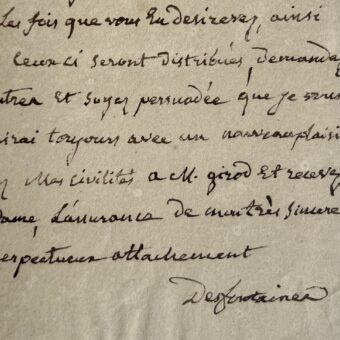 Les fois que vous En desirerez, ainsi
Ceux ci seront distribués, demande
utres Et soyez persuadée que je vous
irai toujours avec un nouveau plaisi
Mes civilités a M. girod Et recevez
dame, L'assurance de mon très sincere
espectueux attachement
Desfontaines